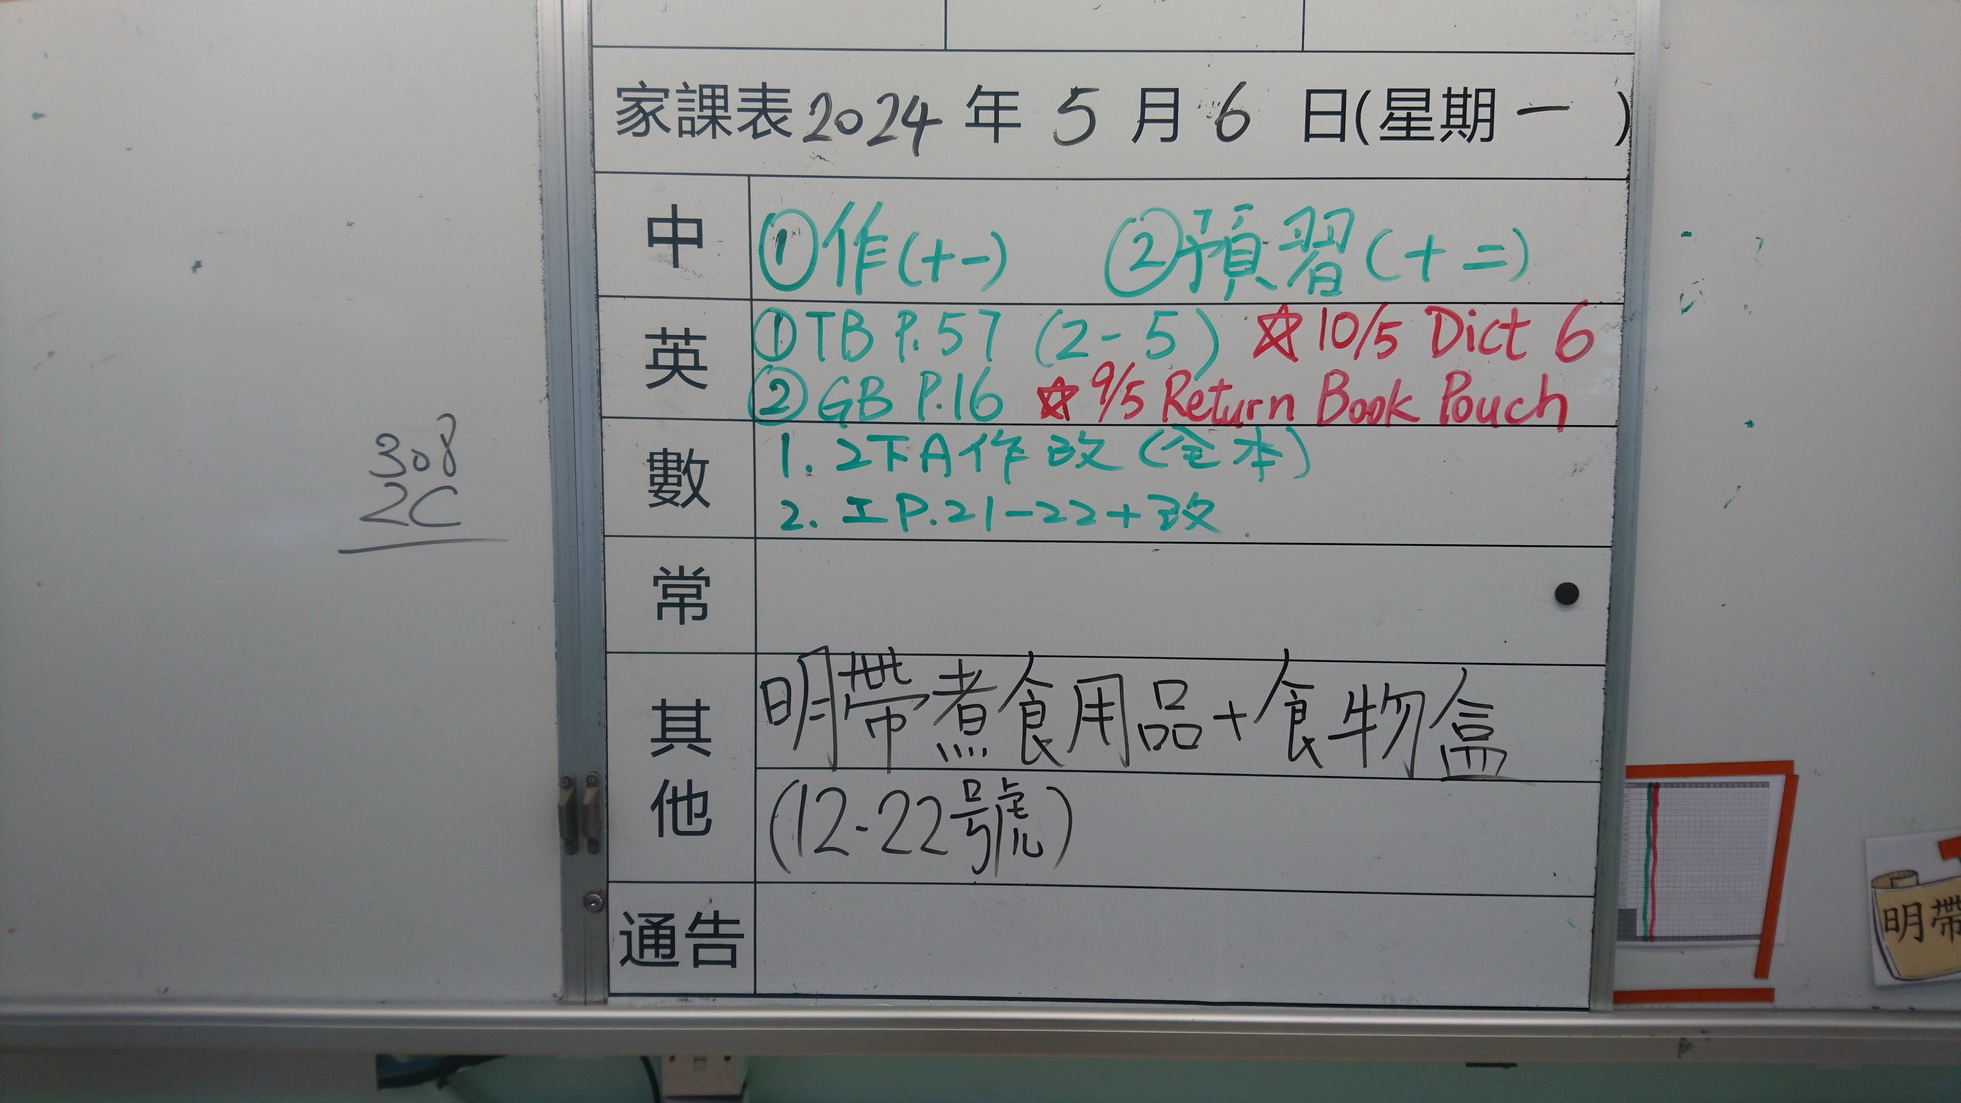 家課表2024年5月6日(星期一)
中 ①作(十一) ②預習(十二)
英 ①TB P.57 (2-5) ☆10/5 Dict 6
②GB P.16 ☆9/5 Return Book Pouch
數 1. 2下A作改(全本)
2. 工P.21-22+改
常
其他 明帶煮食用品+食物盒
(12-22號)
通告
308
2C
明帶